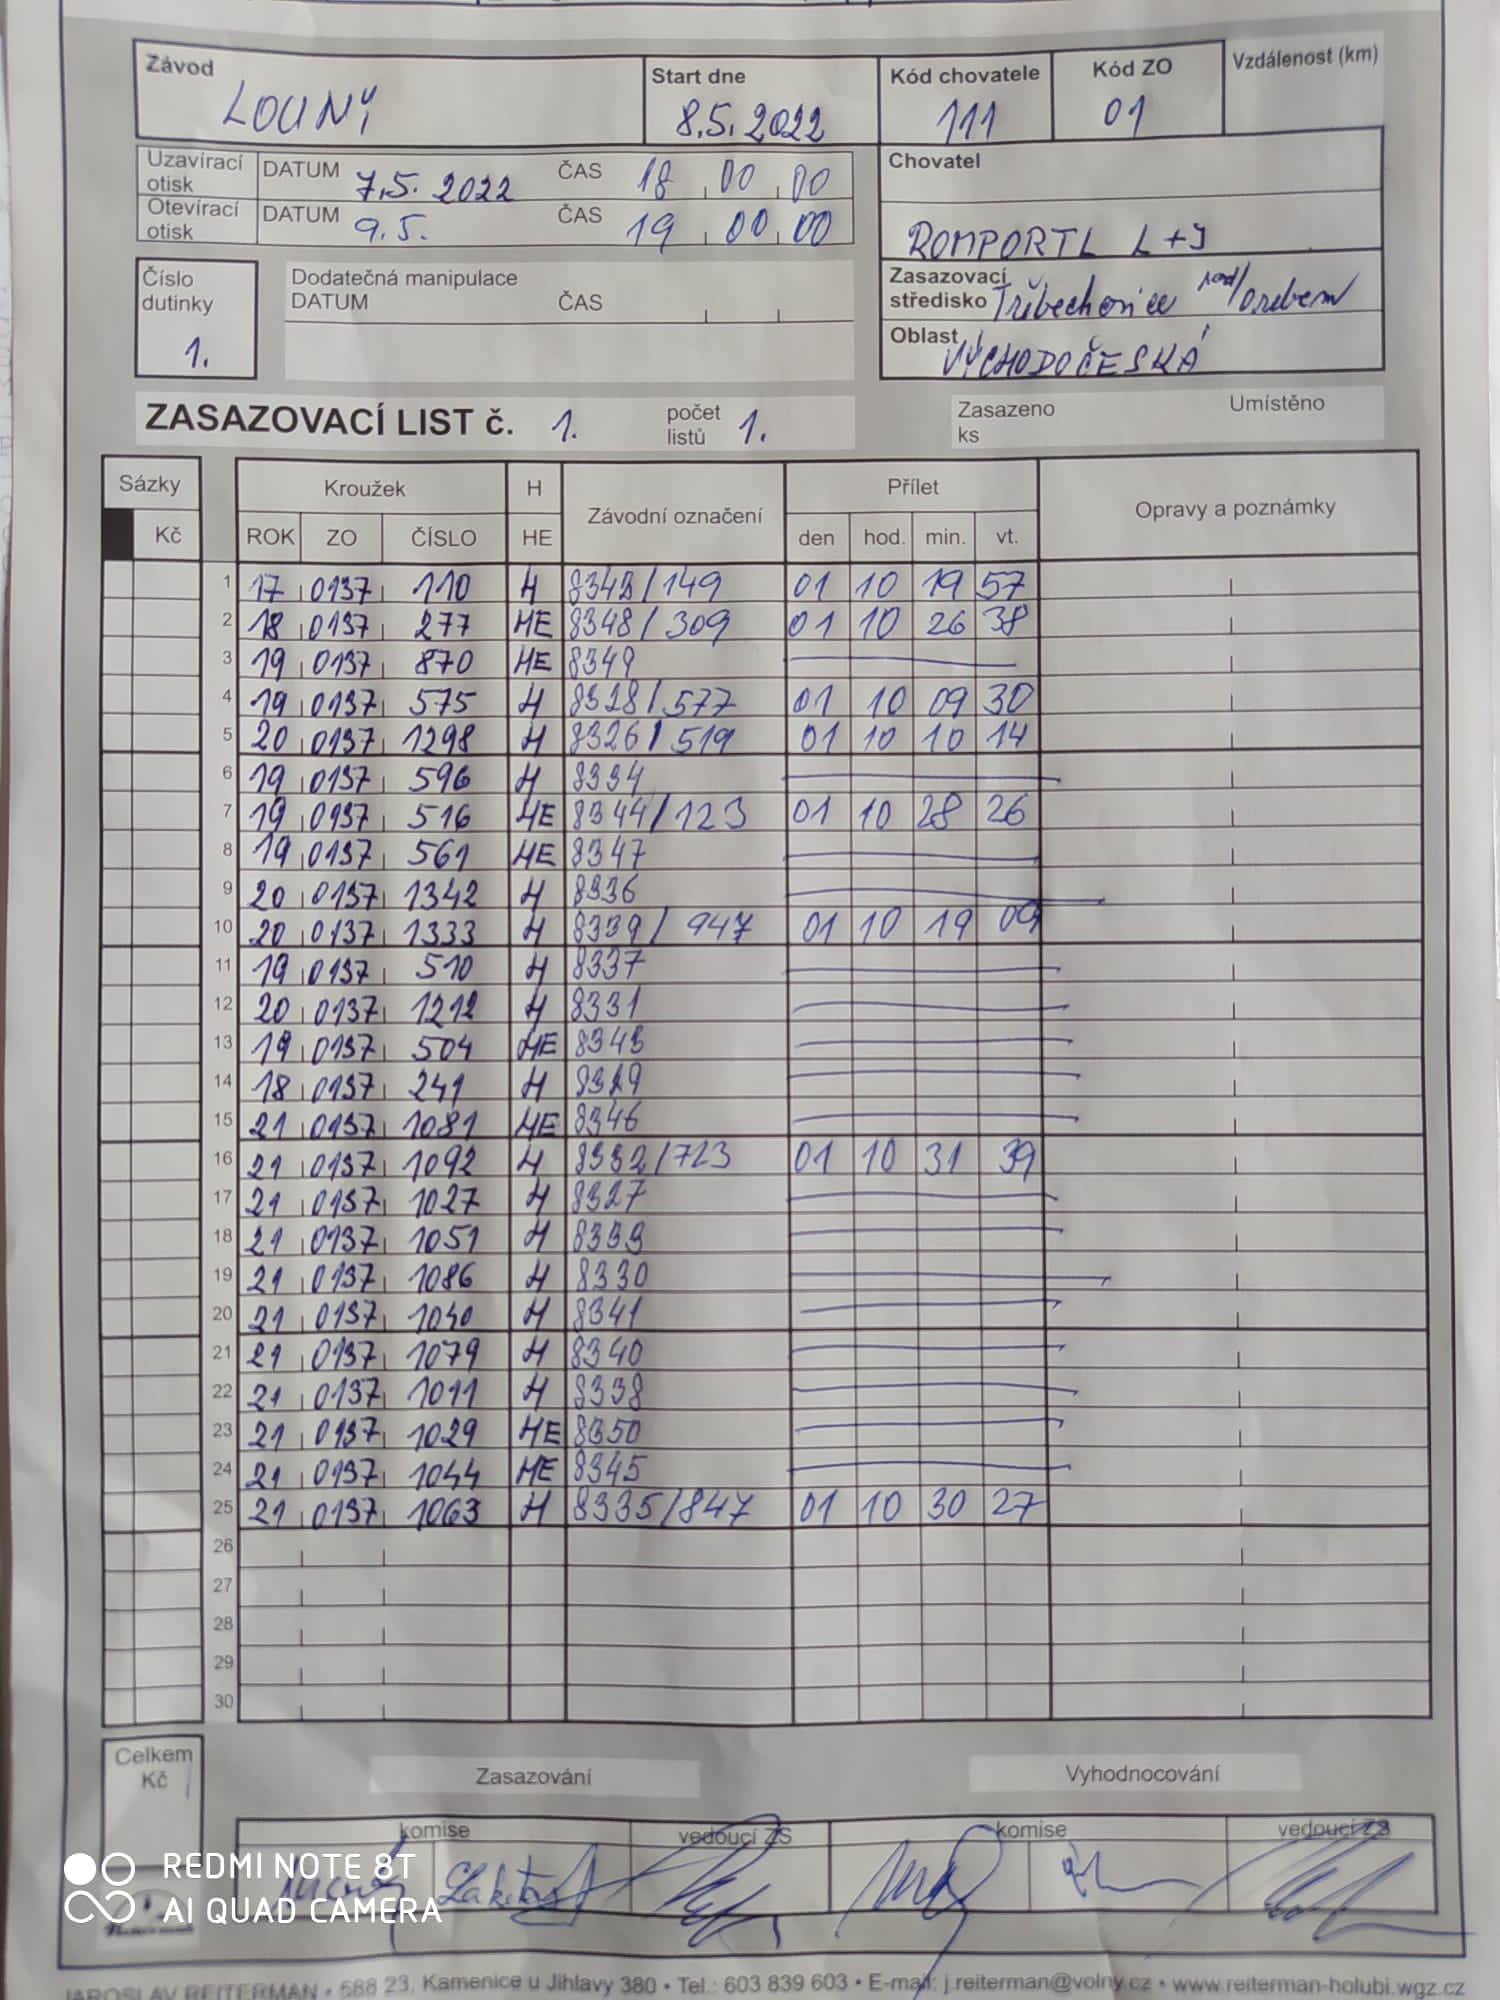 Závod Start dne Kód chovatele Kód ZO Vzdálenost (km)
LOUNY 8.5.2022 111 01
Uzavírací otisk DATUM 7.5.2022 ČAS 18 00 00
Otevírací otisk DATUM 9.5. ČAS 19 00 00
Chovatel
ROMPORTL L+J
Zasazovací středisko Třebechovice nad/Orebem
Oblast VÝCHODOČESKÁ
Číslo dutinky 1.
Dodatečná manipulace
DATUM ČAS
ZASAZOVACÍ LIST č. 1. počet listů 1. Zasazeno ks Umístěno
Sázky Kroužek H Závodní označení Přílet Opravy a poznámky
Kč ROK ZO ČÍSLO HE den hod. min. vt.
1 17 0137 110 H 8343/149 01 10 19 57
2 18 0137 277 HE 8348/309 01 10 26 38
3 19 0137 870 HE 8349
4 19 0137 575 H 8328/577 01 10 09 30
5 20 0137 1298 H 8326/519 01 10 10 14
6 19 0137 596 H 8334
7 19 0137 516 HE 8344/123 01 10 28 26
8 19 0137 561 HE 8347
9 20 0137 1342 H 8336
10 20 0137 1333 H 8339/947 01 10 19 09
11 19 0137 510 H 8337
12 20 0137 1212 H 8331
13 19 0137 504 HE 8343
14 18 0137 241 H 8329
15 21 0137 1081 HE 8346
16 21 0137 1092 H 8332/723 01 10 31 39
17 21 0137 1027 H 8327
18 21 0137 1051 H 8333
19 21 0137 1086 H 8330
20 21 0137 1040 H 8341
21 21 0137 1079 H 8340
22 21 0137 1011 H 8338
23 21 0137 1029 HE 8350
24 21 0137 1044 HE 8345
25 21 0137 1063 H 8335/847 01 10 30 27
26
27
28
29
30
Celkem Kč
Zasazování Vyhodnocování
komise vedoucí ZS komise vedoucí ZS
REDMI NOTE 8T
AI QUAD CAMERA
JAROSLAV REITERMAN • 588 23, Kamenice u Jihlavy 380 • Tel.: 603 839 603 • E-mail: j.reiterman@volny.cz • www.reiterman-holubi.wgz.cz